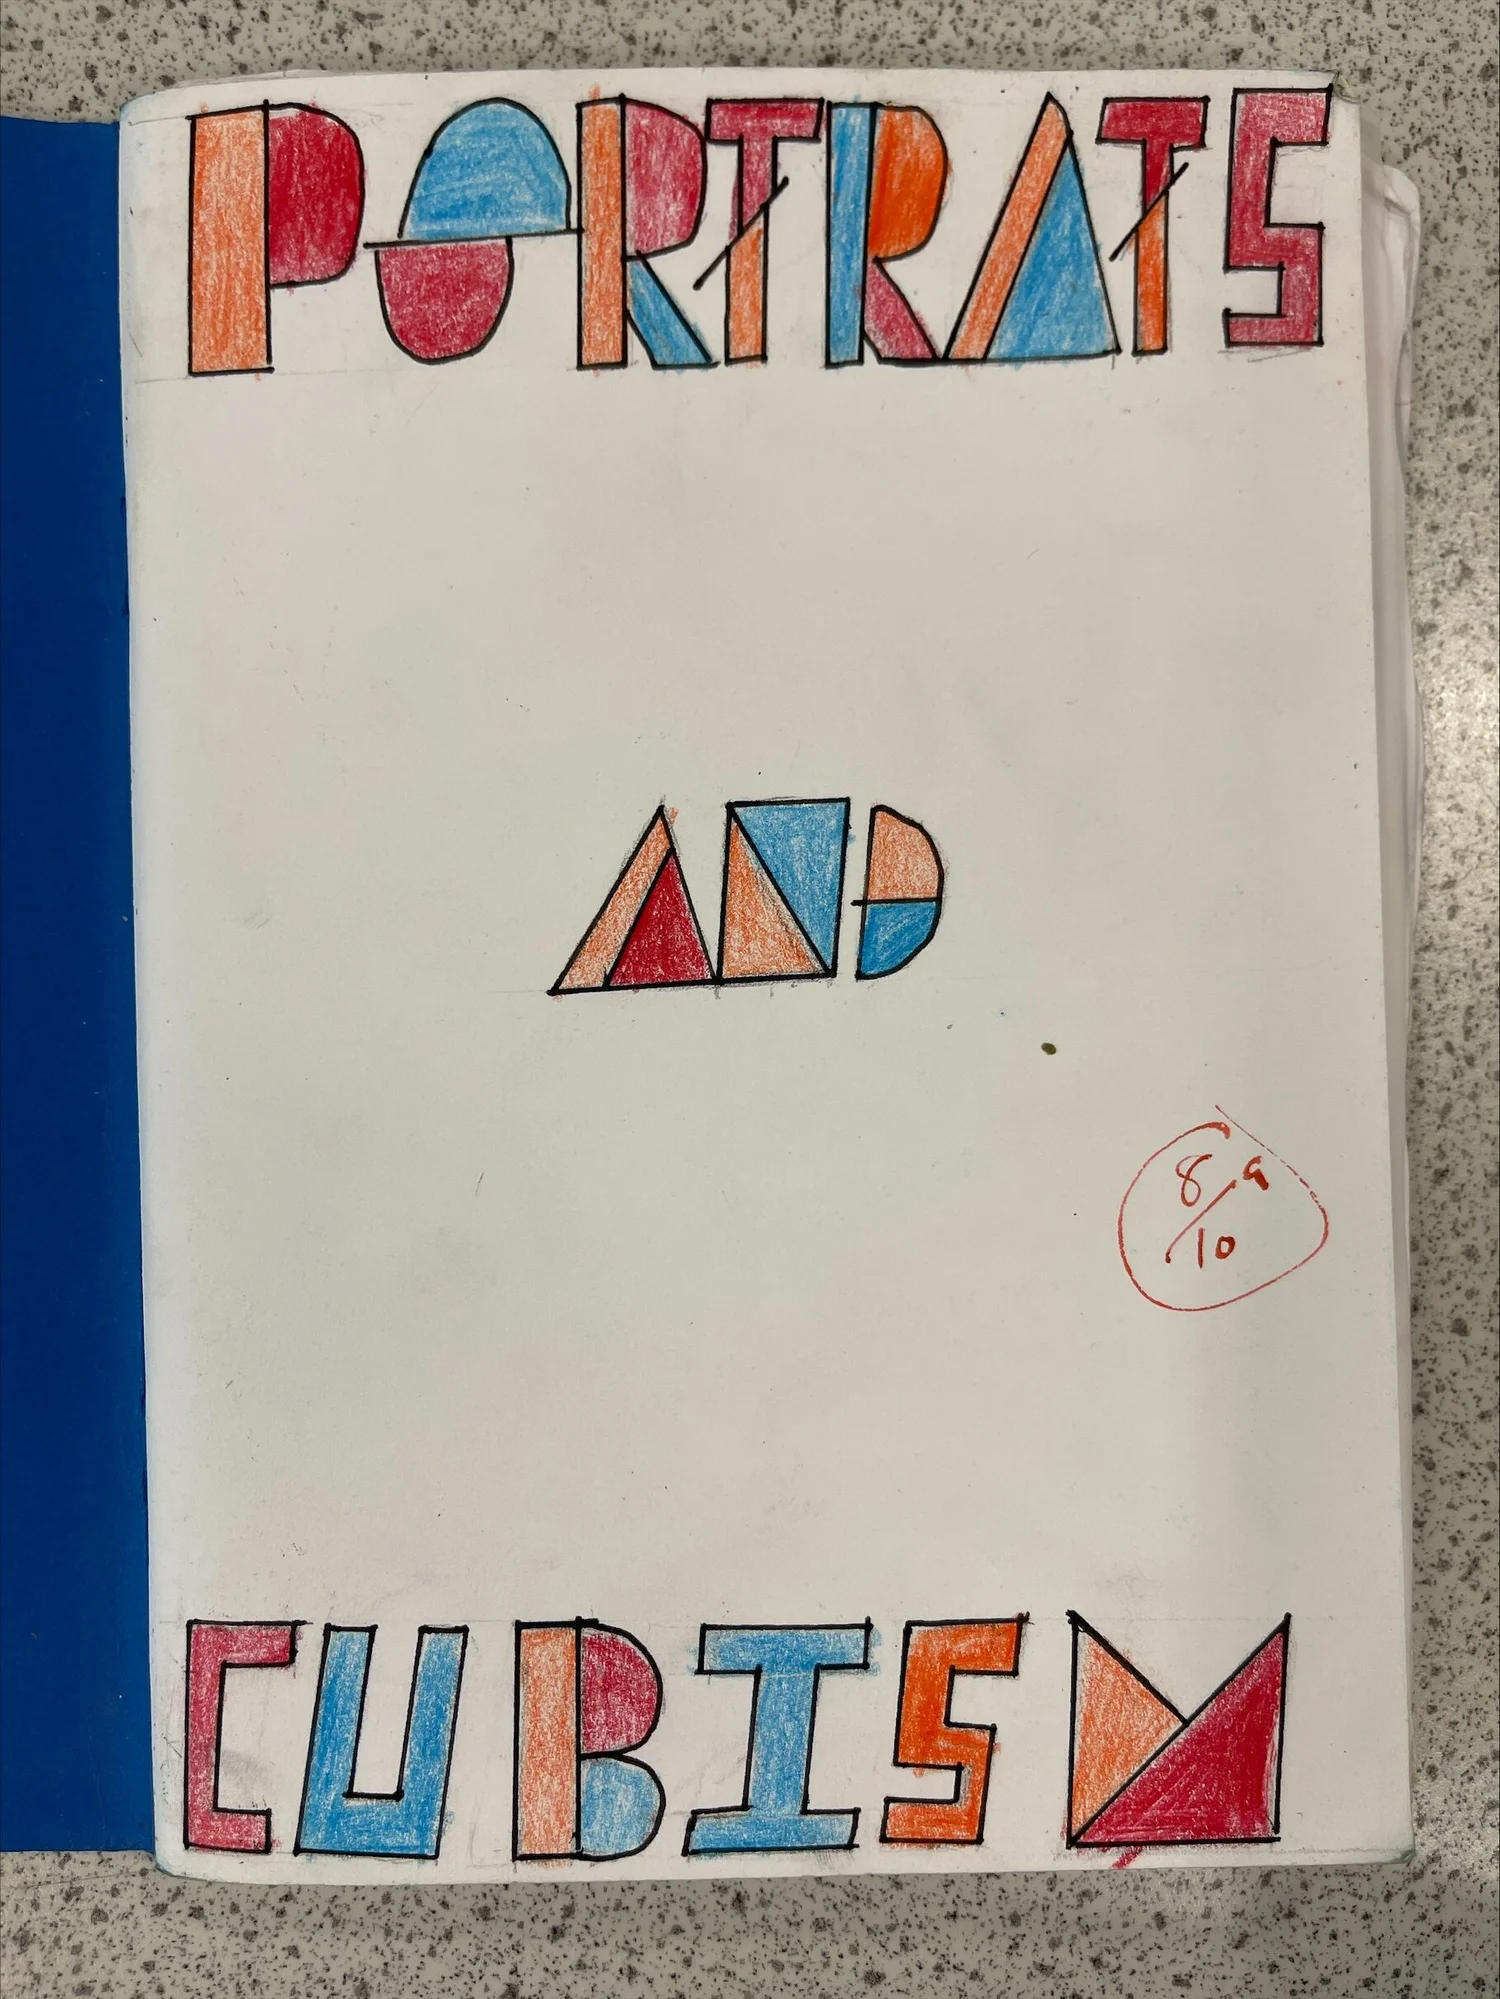 PORTRATS
AND
8/9
10
CUBISM